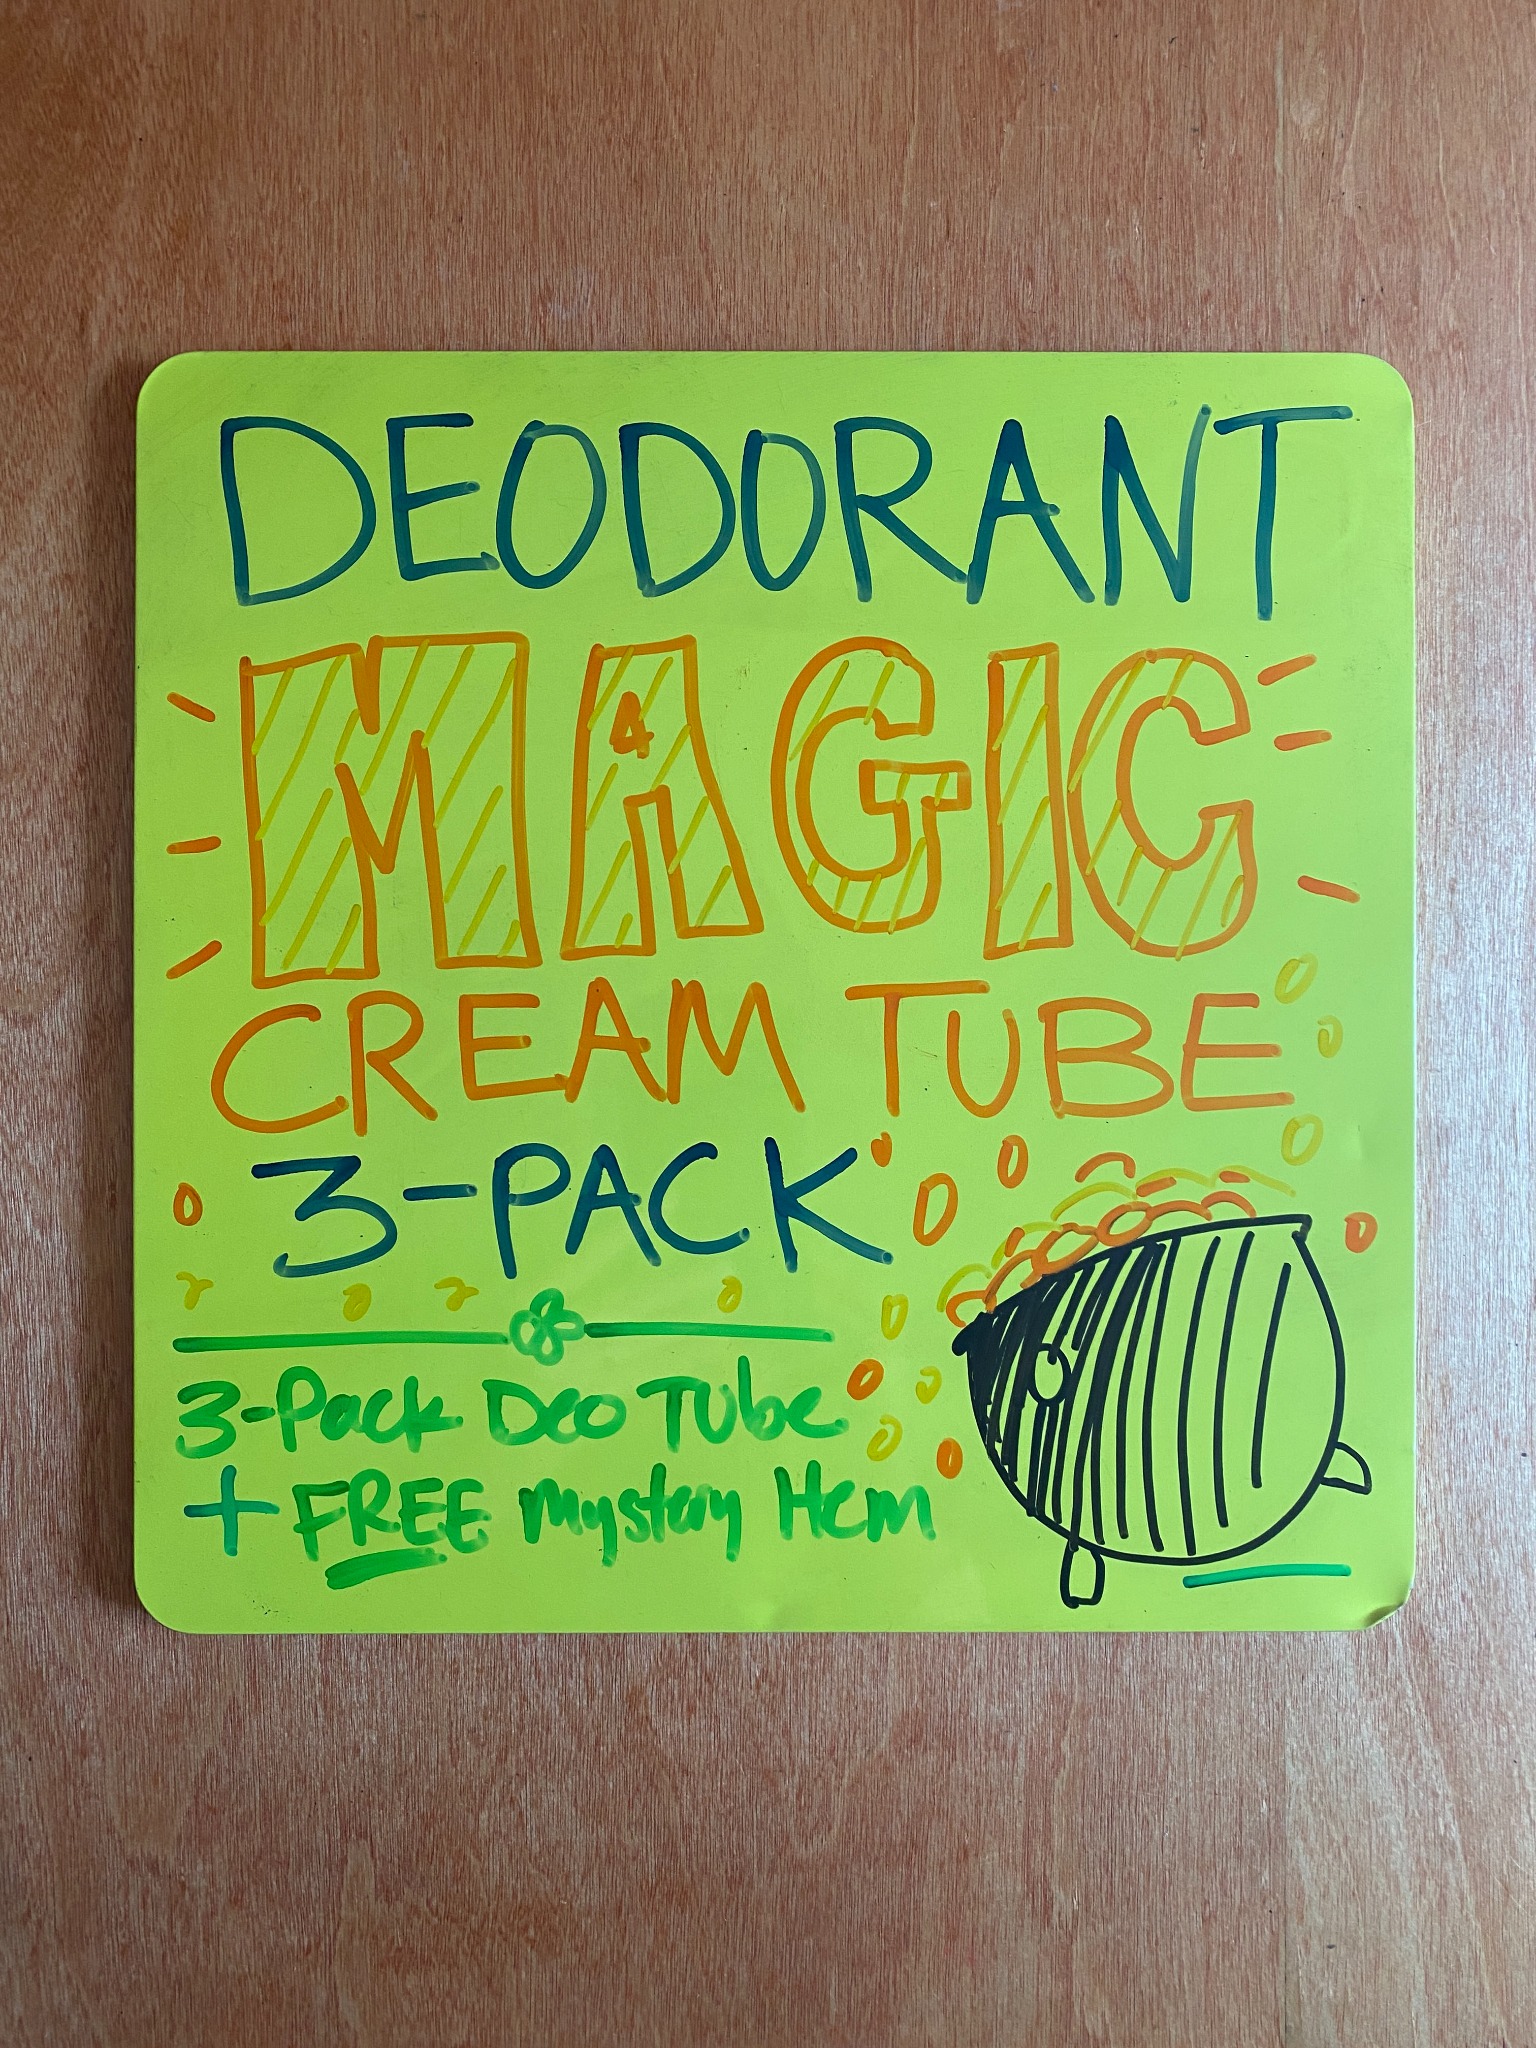 DEODORANT
MAGIC
CREAM TUBE
3-PACK
3-Pack Deo Tube
+ FREE mystery Item